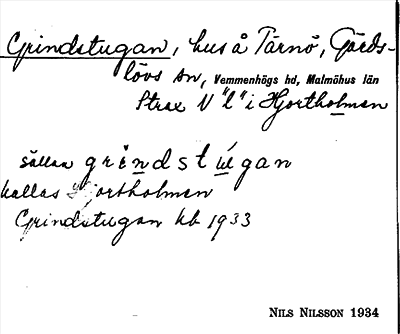 Grindstugan, hus å Tärnö, Gärds-
lövs sn, Vemmenhögs hd, Malmöhus län
Strax N "l" i Hjortholmen
sällan grīndstúgan
kallas Hjortholmen
Grindstugan kb 1933
NILS NILSSON 1934